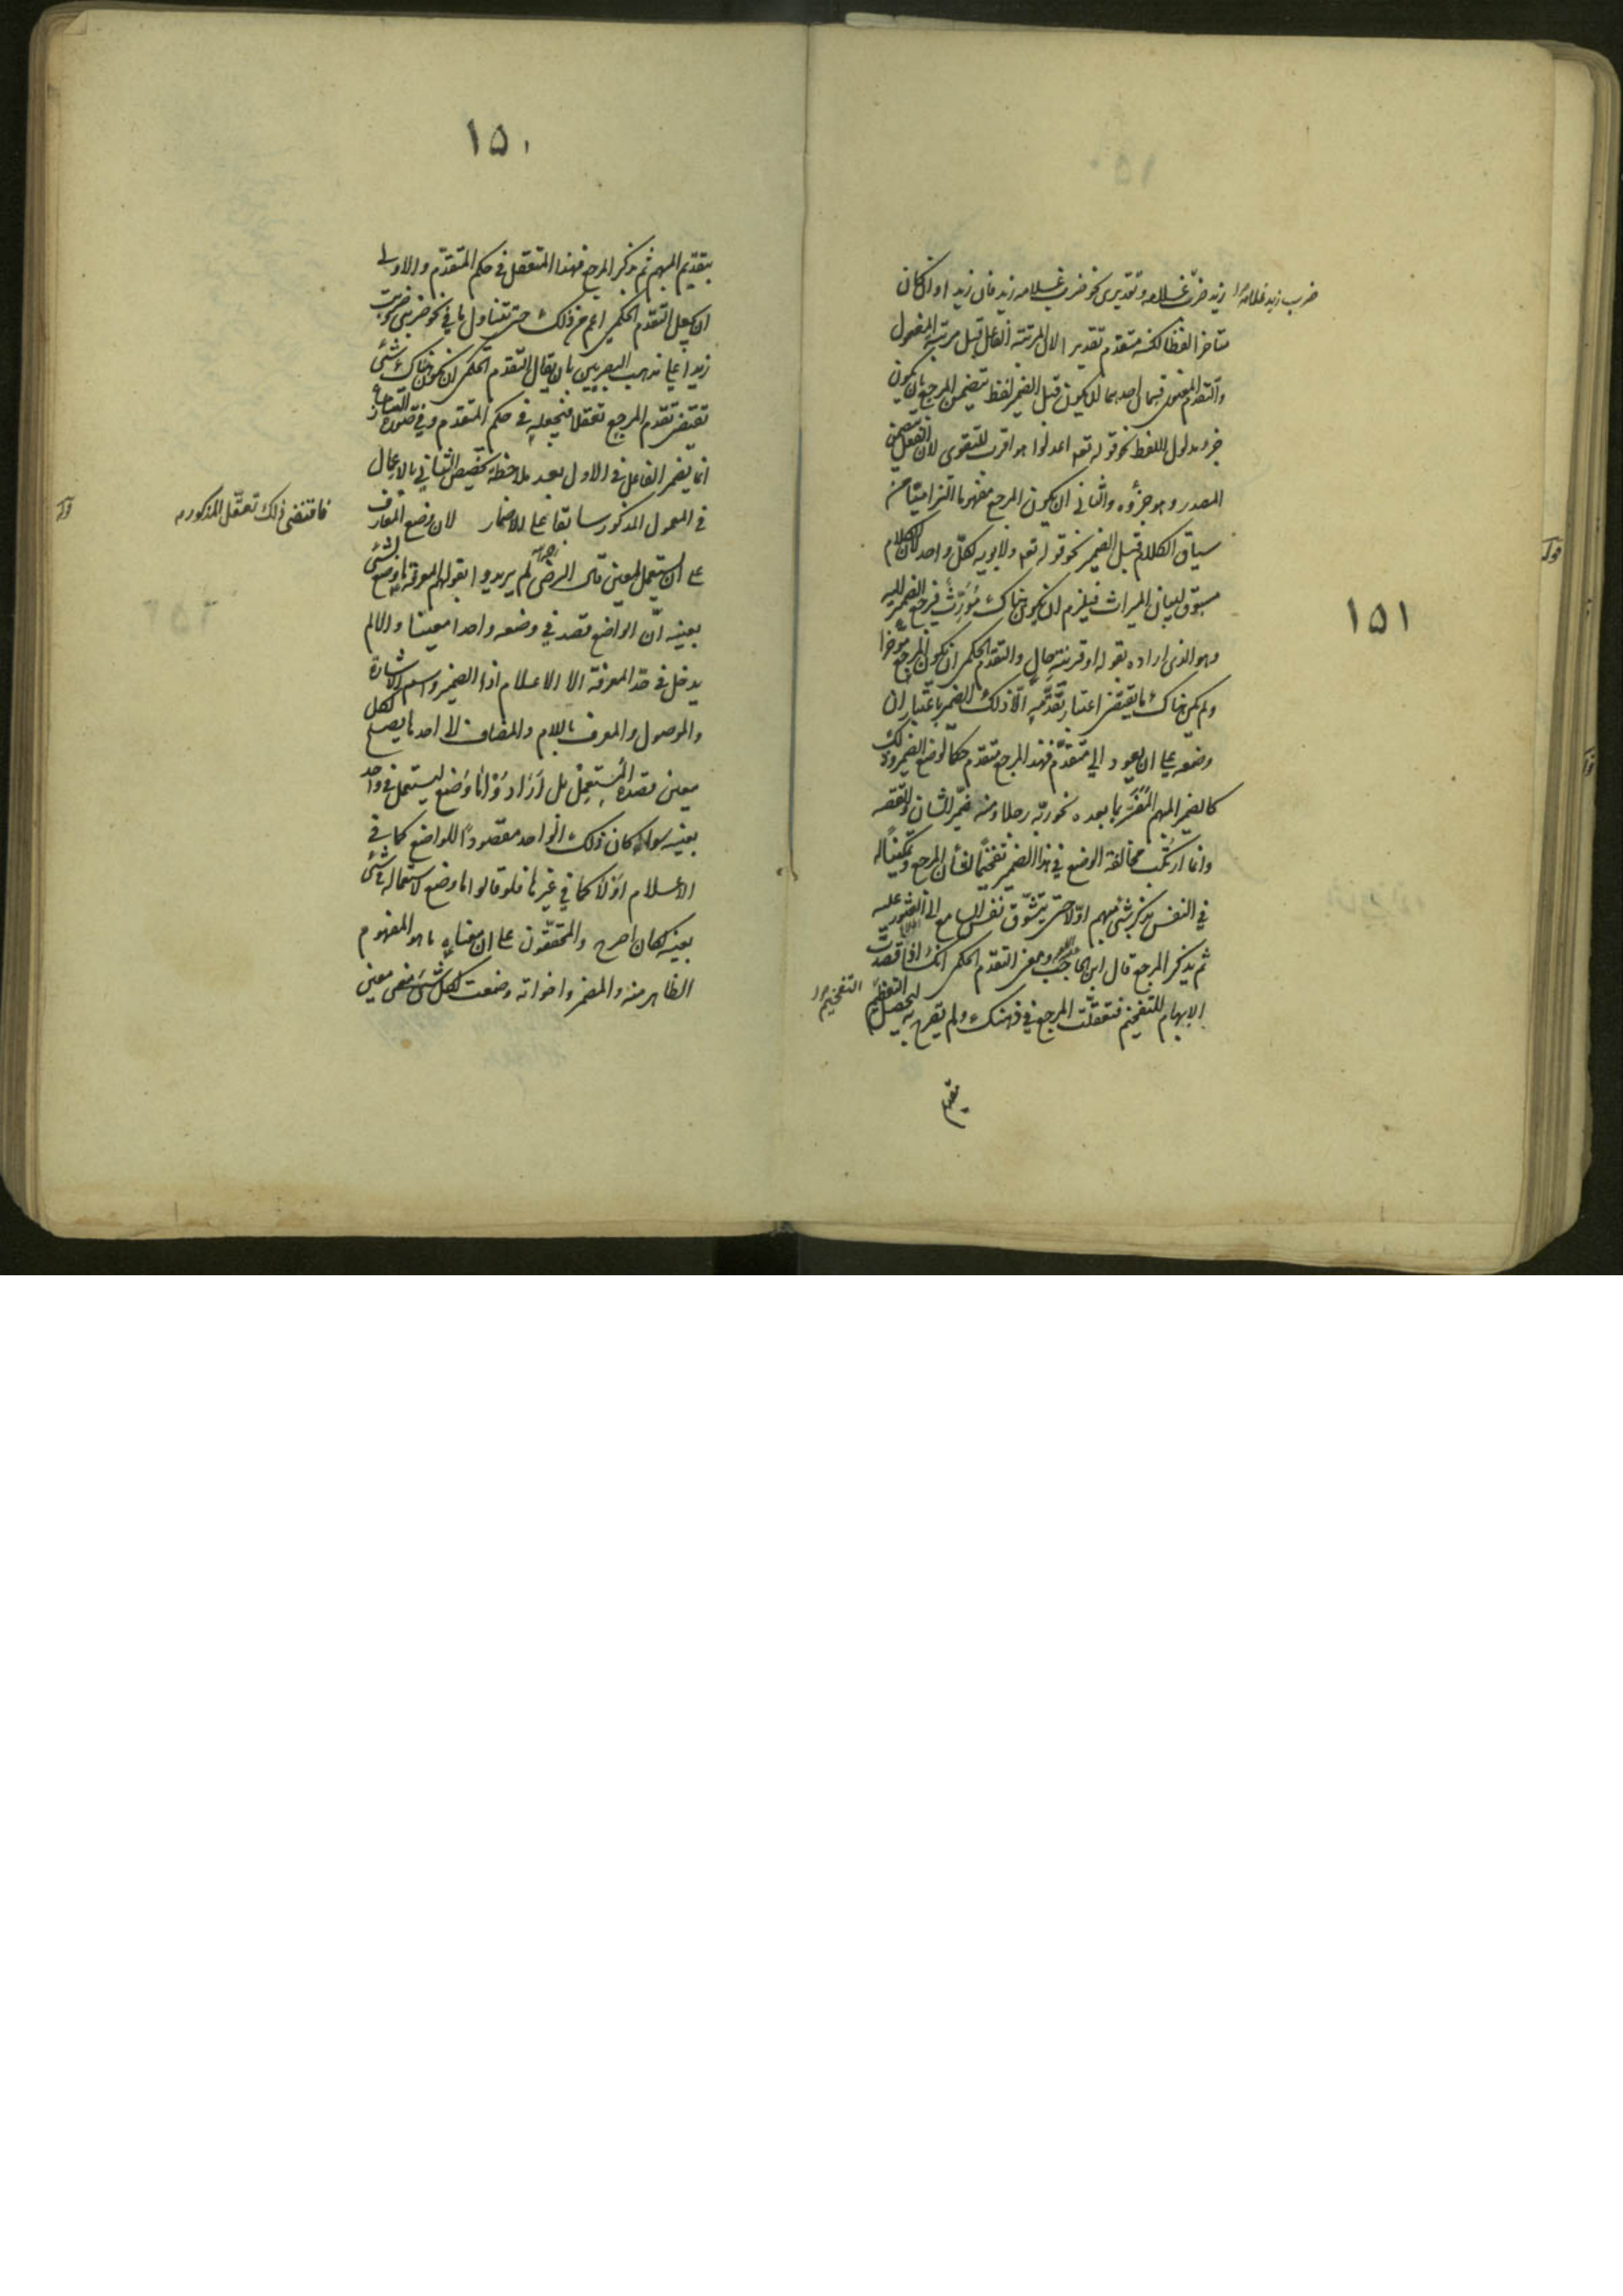 ١٥١
ضرب زيد غلامه
زيد ضرب غلامه وتقديرى نحو ضرب غلامه زيد فان زيدا وان كان
متاخرا لفظا لكنه متقدم تقديرا لان مرتبة الفاعل قبل مرتبة المفعول
والتقدم المعنوى قسمان احدهما ان يكون قبل الضمير لفظ يتضمن المرجع بان يكون
جزء مدلول اللفظ نحو قوله تعه اعدلوا هو اقرب للتقوى لان الفعل يتضمن
المصدر وهو جزؤه والثانى ان يكون المرجع مفهوما التزاميا من
سياق الكلام قبل الضمير نحو قوله تعه ولابويه لكل واحد لان الكلام
مسوق لبيان الميراث فيلزم ان يكون هناك مورث فيرجع الضمير اليه
وهو الذى اراده بقوله او قرينة حال والتقدم الحكمى ان يكون المرجع مؤخرا
ولم يكن هناك ما يقتضى اعتبار تقدمه الا ذلك الضمير باعتبار ان
وضعه على ان يعود الى متقدم فهذا المرجع متقدم حكما لوضع الضمير وذلك
كالضمير المبهم المفسر بما بعده نحو ربه رجلا ومنه ضمير الشان والقصه
وانما ارتكبت مخالفة الوضع فى هذا الضمير تفخيما لشأن المرجع وتمكينا له
فى النفس بذكر شئ مبهم اولا حتى يتشوق نفس السامع الى العثور عليه
ثم يذكر المرجع قال ابن الحاجب ومعنى التقدم الحكمى انك اذا قصدت
الابهام للتفخيم فتعقلت المرجع فى ذهنك ولم تصرح به ليحصل التعظيم
التفخيم
بتقديم
١٥٠
بتقديم المبهم ثم بذكر المرجع فهذا المتعقل فى حكم المتقدم والاولى
ان يجعل التقدم الحكمى اعم من ذلك حتى تتناول ما فى نحو ضربنى وضربت
زيدا على مذهب البصريين بان يقال التقدم الحكمى ان يكون هناك شئ
تقتضى تقدم المرجع تعقلا فيجعله فى حكم المتقدم وفى صورة التنازع
انما يضمر الفاعل فى الاول بعد ملاحظة تخصيص الثانى بالاعمال
فى المعمول المذكور سابقا على الاضمار لان وضع المعارف
فاقتضى ذلك تعقل المذكور
على ان يستعمل لمعين قال الرضى لم يريدوا بقولهم المعرفة ما وضع لشئ
بعينه ان الواضع قصد فى وضعه واحدا معينا والا لم
يدخل فى حد المعرفة الا الاعلام اذ الضمير واسم الاشارة
والموصول والمعرف باللام والمضاف الى احدها يصلح لكل
معين قصده المستعمل بل ارادوا ما وضع ليستعمل فى واحد
بعينه سواء كان ذلك الواحد مقصودا للواضع كما فى
الاعلام اولا كما فى غيرها فلو قالوا ما وضع لاستعماله فى شئ
بعينه لكان اصرح والمحققون على ان معناه ما هو المفهوم
الظاهر منه والمضمر واخواته وضعت لكل شئ معين